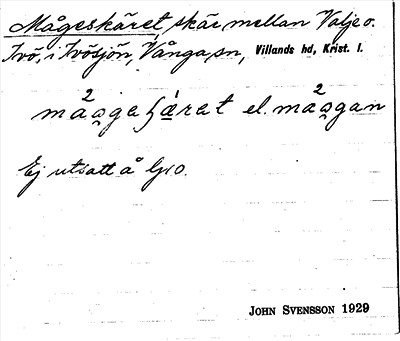 Mågeskäret, skär mellan Valje o.
Ivö, i Ivösjön, Vånga sn, Villands hd, Krist. l.
el.
Ej utsatt å
JOHN SVENSSON 1929